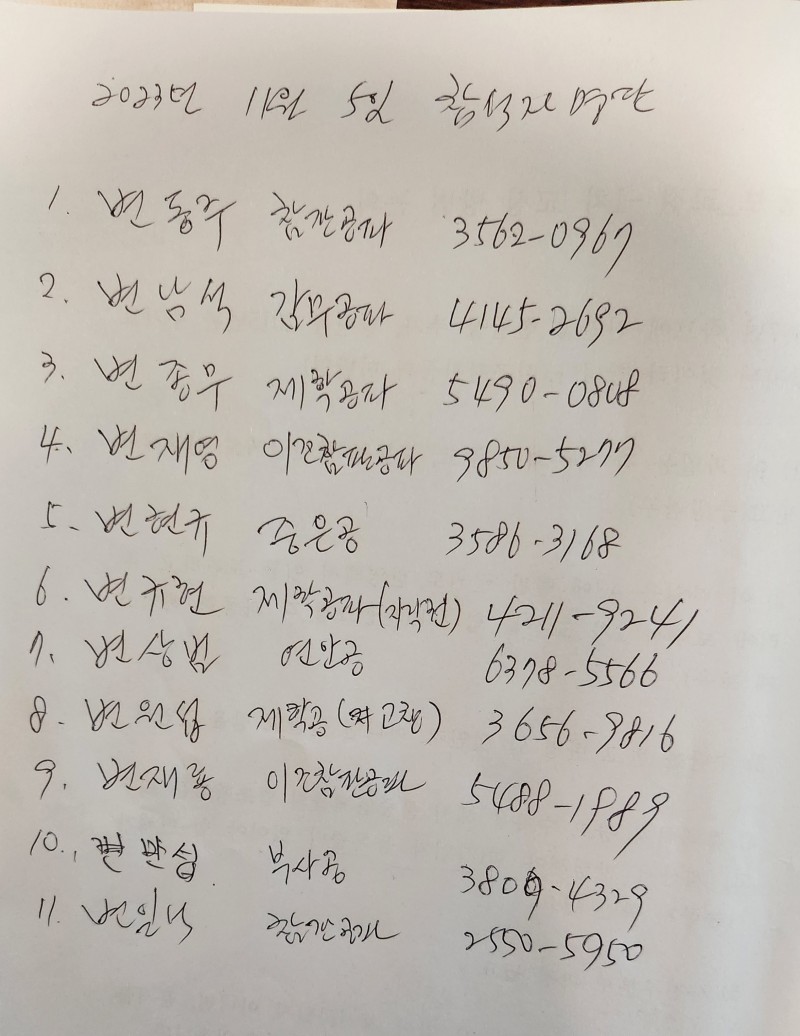 2023년 11월 5일 참석자 명단
1. 변동주 참판공파 3562-0967
2. 변남석 감무공파 4145-2692
3. 변종무 제학공파 5490-0808
4. 변재영 이조참판공파 9850-5277
5. 변현규 중은공 3586-3168
6. 변규현 제학공파 4211-9241
7. 변상범 연안공 6378-5566
8. 변원섭 제학공 (고창) 3656-9816
9. 변재룡 이조참판공파 5488-1989
10. 변만섭 부사공 3809-4329
11. 변일 참판공파 2550-5950